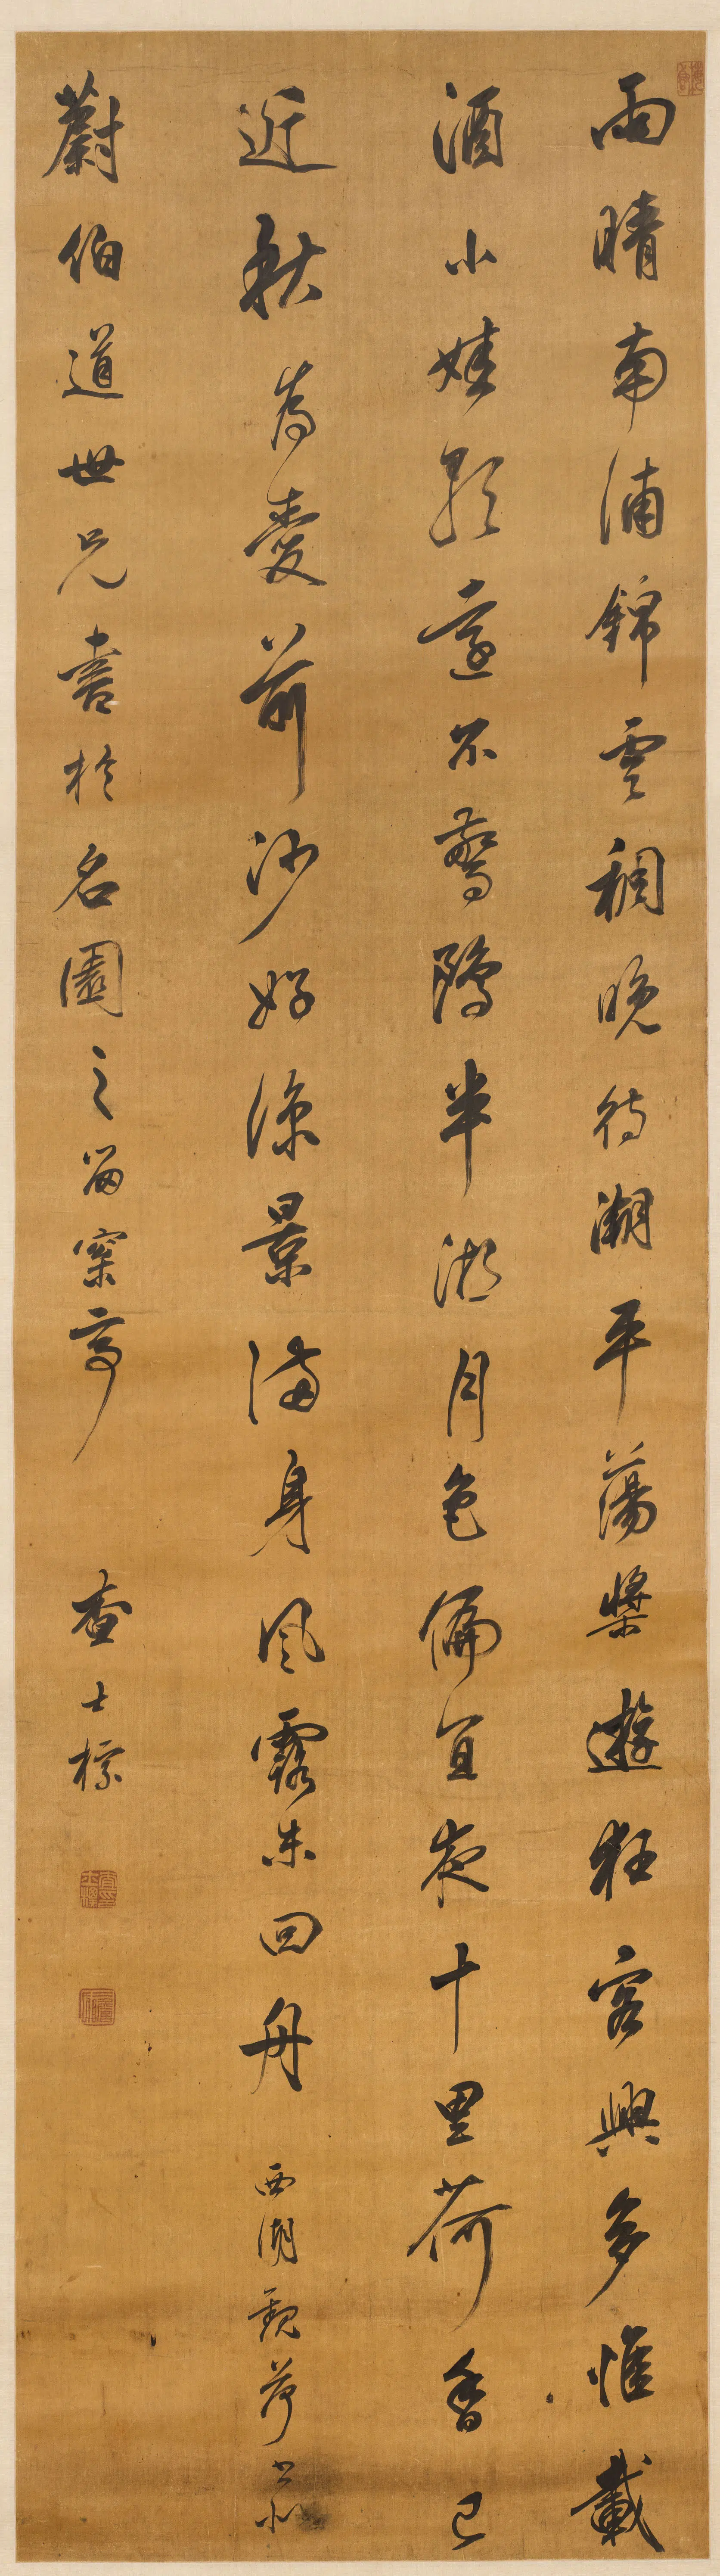 雨晴南浦錦雲稠晚待潮平蕩槳遊狂客興多惟載
酒小娃歌遠不驚鷗半湖月色偏宜夜十里荷香已
近秋為愛前沙好涼景滿身風露未回舟 西湖觀荷
蔚伯道世兄書於名園之留窠亭 查士標